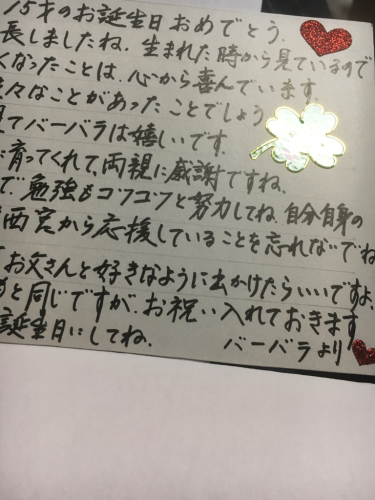 15才のお誕生日おめでとう。
長しましたね。生まれた時から見ているので
くなったことは、心から喜んでいます。
々なことがあったことでしょう
てバーバラは嬉しいです。
に育ってくれて、両親に感謝ですね。
で、勉強もコツコツと努力してね。自分自身の
西宮から応援していることを忘れないでね
お父さんと好きなように出かけたらいいですよ。
と同じですが、お祝い入れておきます
誕生日にしてね。
バーバラより